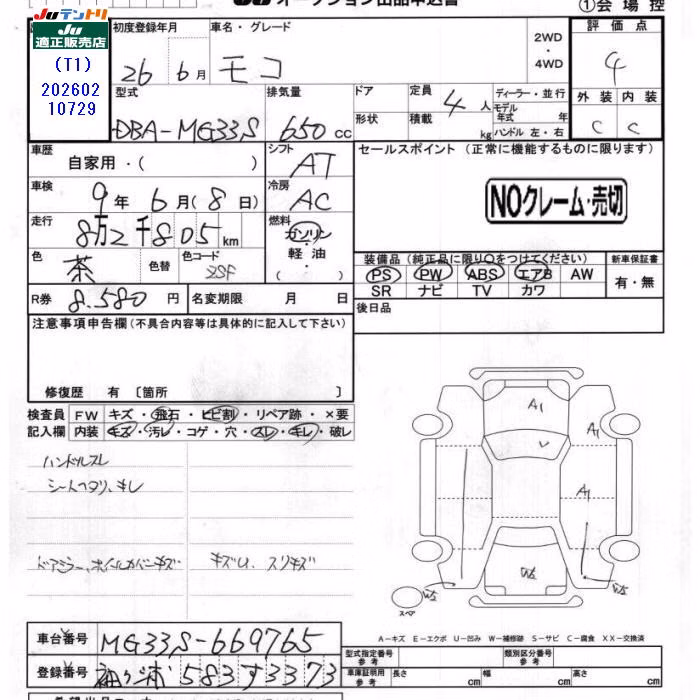 JUテントリ
JU オークション出品申込書
①会場控
JU
適正販売店
(T1)
202602
10729
初度登録年月
26 年 6 月
車名・グレード
モコ
2WD
・
4WD
評価点
4
型式
DBA-MG33S
排気量
650 cc
ドア
形状
定員 4 人
積載 kg
ディーラー・並行
モデル年式 年
ハンドル 左・右
外装 内装
C C
車歴
自家用・( )
シフト
AT
セールスポイント (正常に機能するものに限ります)
NOクレーム・売切
車検
9 年 6 月 (8 日)
冷房
AC
走行
8万2千805 km
燃料
ガソリン
・
軽油
・
( )
色
茶 色替
色コード
装備品 (純正品に限り○をつけてください)
新車保証書
PS PW ABS エアB AW
SR ナビ TV カワ
有・無
R券 8.580 円
名変期限 月 日
後日品
注意事項申告欄 (不具合内容等は具体的に記入して下さい)
修復歴 有 〔箇所 〕
検査員
記入欄
FW キズ・飛石・ヒビ割・リペア跡・×要
内装 キズ・汚レ・コゲ・穴・スレ・キレ・破レ
ハンドルスレ
シートヘタリ、キレ
ドアミラー、ホイルカバーキズ
キズU、スリキズ
A1
A1
A1
U
W2
W2
スペア
A−キズ E−エクボ U−凹み W−補修跡 S−サビ C−腐食 XX−交換済
車台番号 MG33S-669765
登録番号 袖ヶ浦 583 す 3373
型式指定番号
参考
類別区分番号
参考
車庫証明用
参考
長さ cm 幅 cm 高さ cm